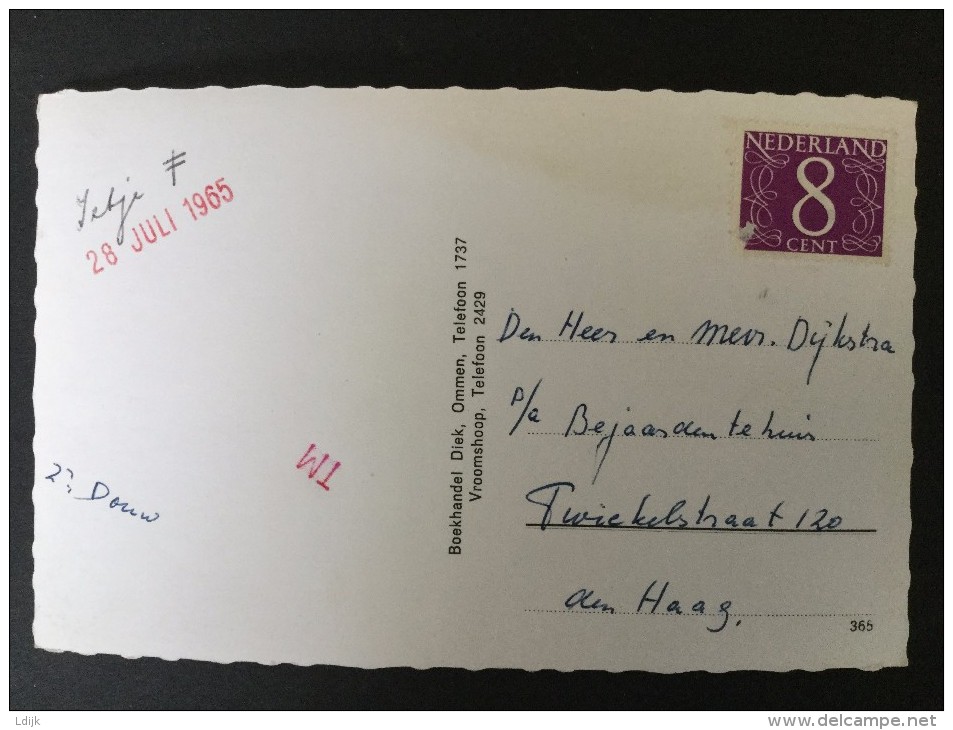 28 JULI 1965
TM
Douw
Boekhandel Diek, Ommen, Telefoon 1737
Vroomshoop, Telefoon 2429
NEDERLAND
8
CENT
Den Heer en Mevr. Dijkstra
p/a Bejaardentehuis
Twickelstraat 120
den Haag.
365
Ldijk
www.delcampe.net